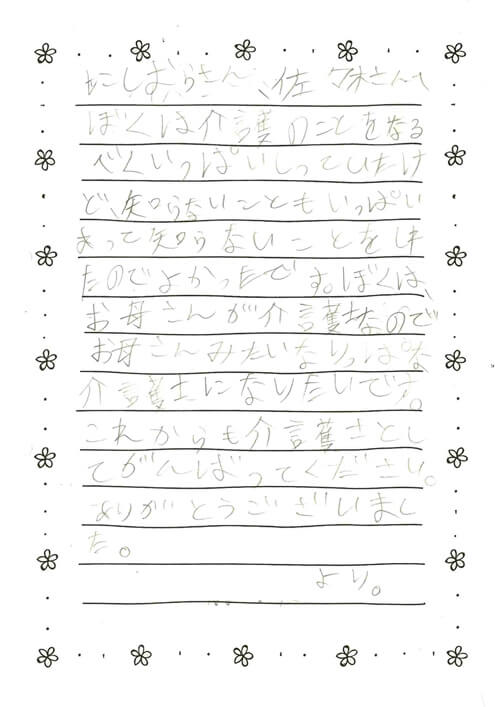 にしむらさん、佐々木さんへ
ぼくは介護のことをなる
べくいっぱいしっていたけ
ど、知らないこともいっぱい
あって知らないことをしれ
たのでよかったです。ぼくは、
お母さんが介護士なので
お母さんみたいなりっぱな
介護士になりたいです。
これからも介護士さとし
てがんばってください。
ありがとうございまし
た。
より。